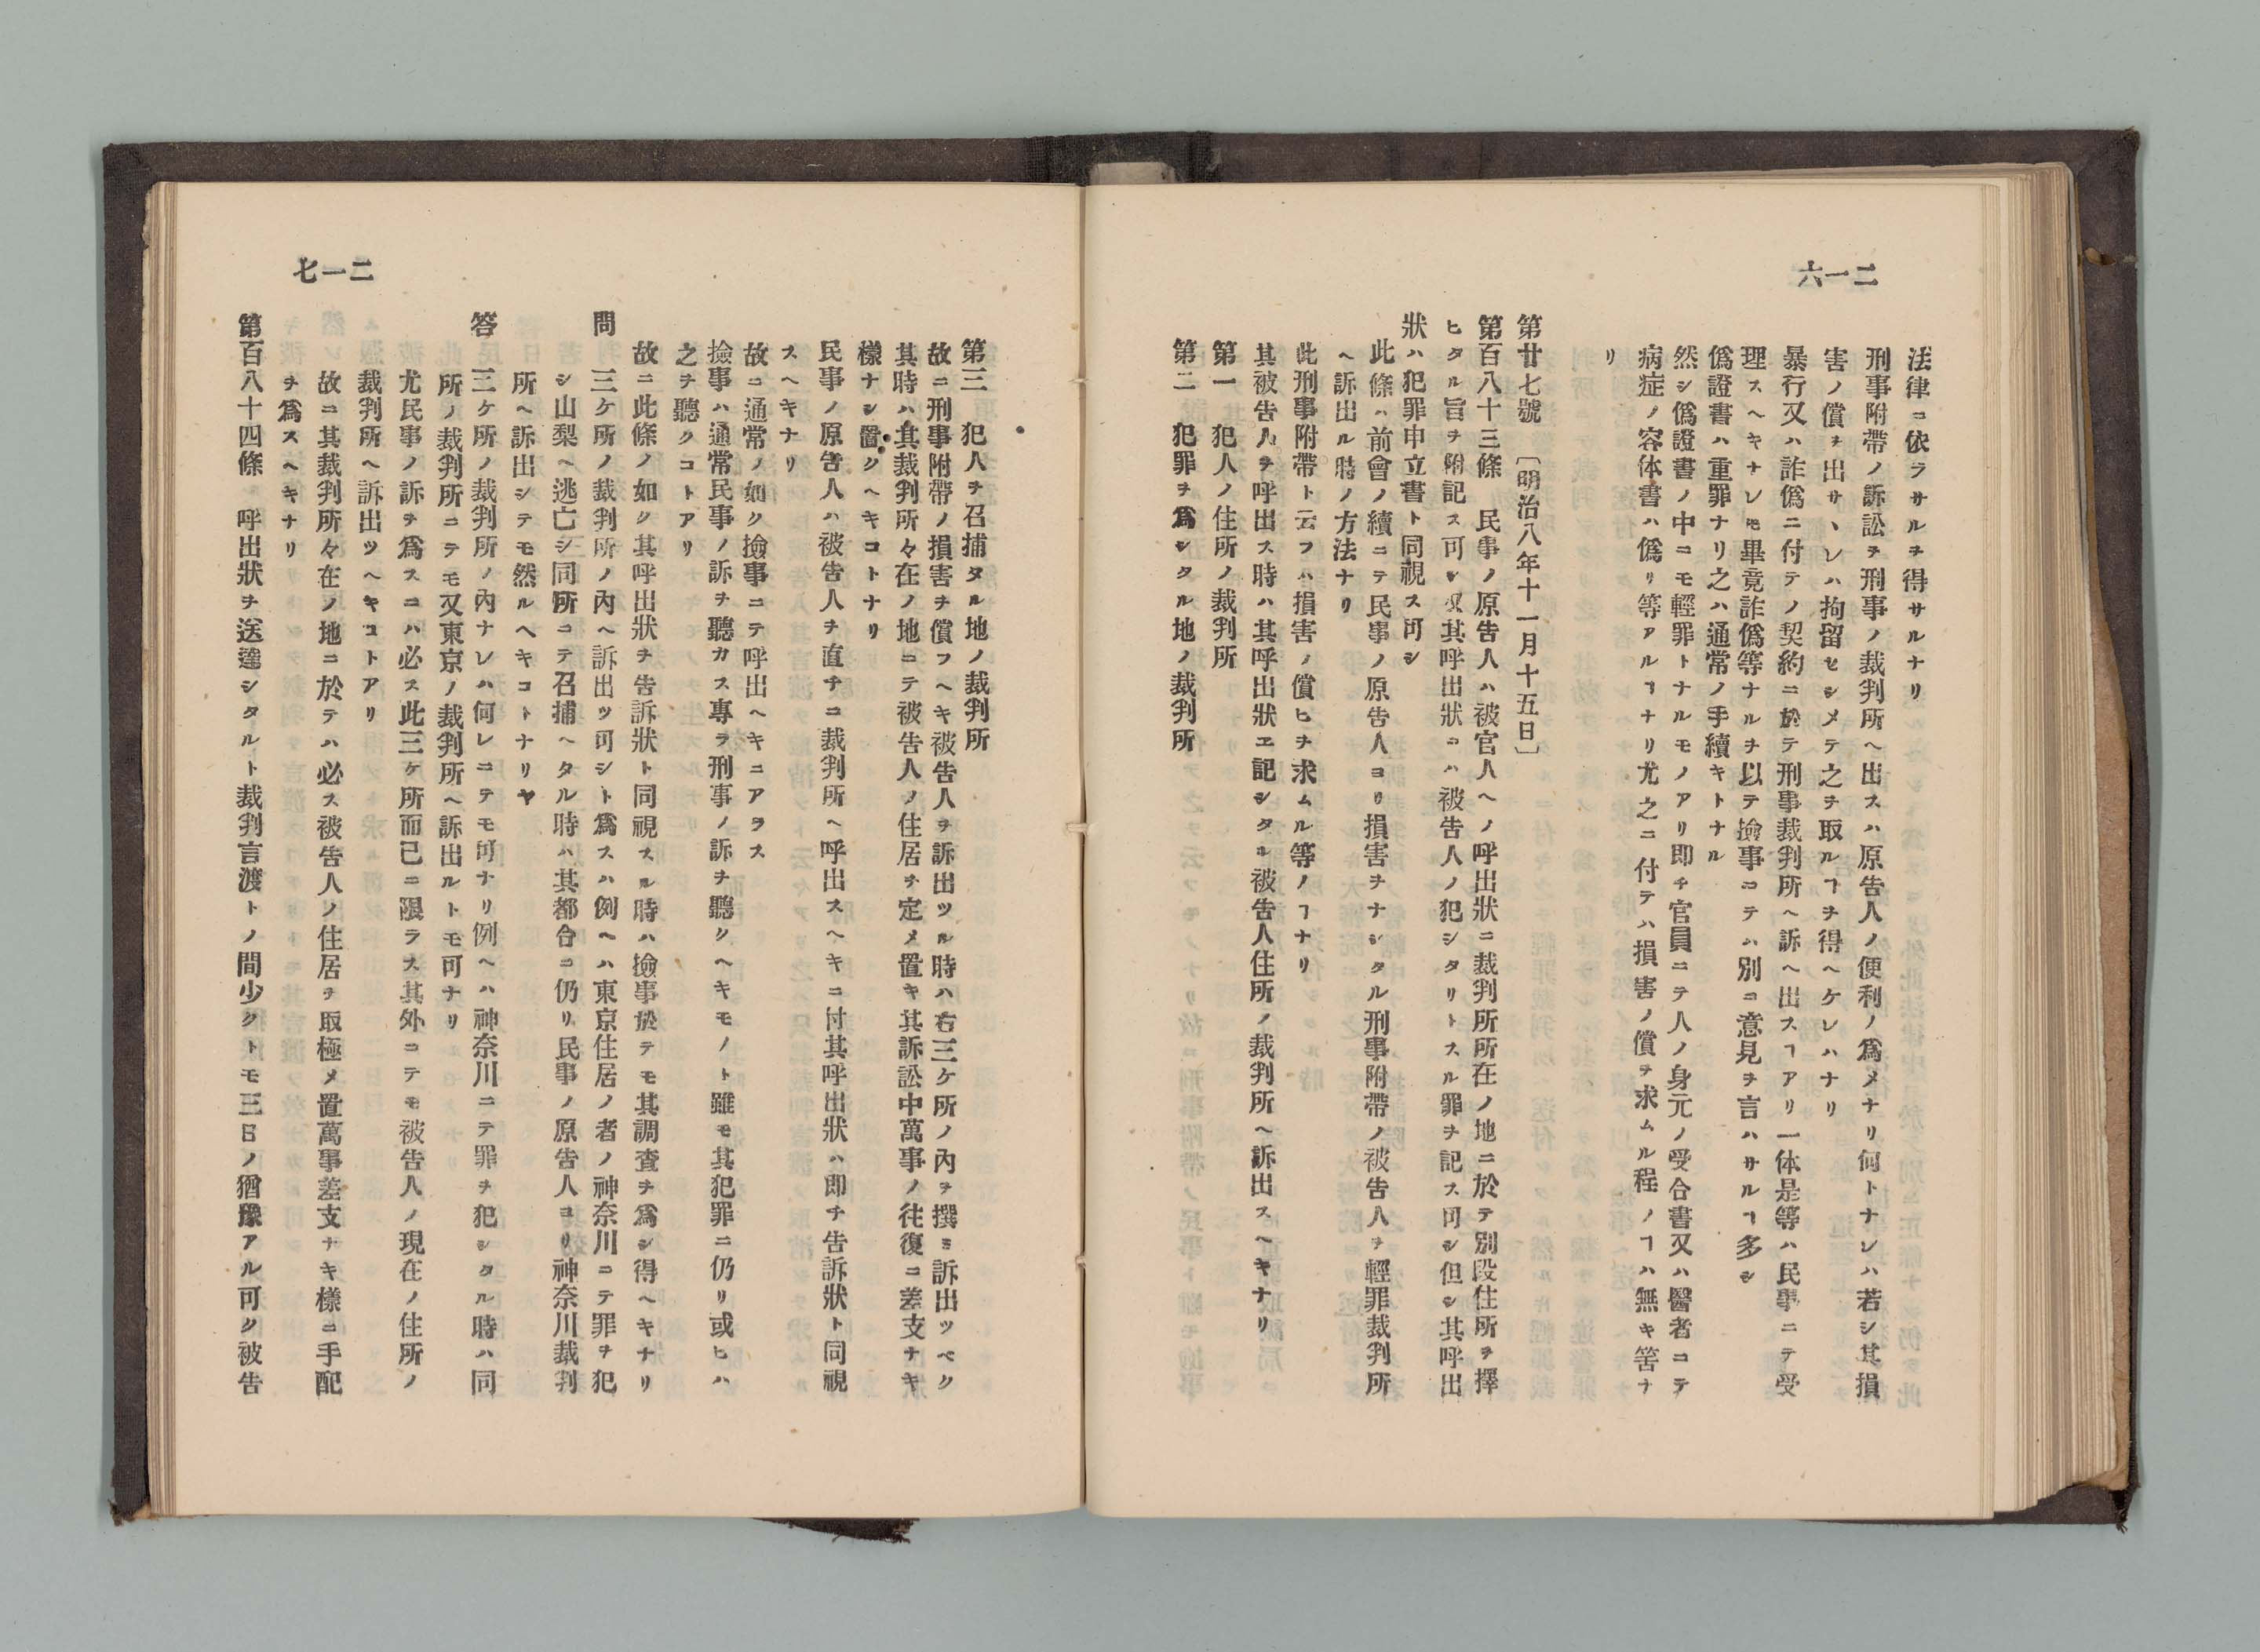 二一六
法律ニ依ラサルヲ得サルナリ
刑事附帶ノ訴訟ヲ刑事ノ裁判所ヘ出スハ原告人ノ便利ノ爲メナリ何トナレハ若シ其損
害ノ償ヲ出サヽレハ拘留セシメテ之ヲ取ルヿヲ得ヘケレハナリ
暴行又ハ詐僞ニ付テノ契約ニ於テ刑事裁判所ヘ訴ヘ出スヿアリ一体是等ハ民事ニテ受
理スヘキナレモ畢竟詐僞等ナルヲ以テ撿事ニテハ別ニ意見ヲ言ハサルヿ多シ
僞證書ハ重罪ナリ之ハ通常ノ手續キトナル
然シ僞證書ノ中ニモ輕罪トナルモノアリ即チ官員ニテ人ノ身元ノ受合書又ハ醫者ニテ
病症ノ容体書ハ僞リ等アルヿナリ尤之ニ付テハ損害ノ償ヲ求ムル程ノヿハ無キ筈ナ
リ
第廿七號　〔明治八年十一月十五日〕
第百八十三條　民事ノ原告人ハ被官人ヘノ呼出狀ニ裁判所所在ノ地ニ於テ別段住所ヲ擇
ヒタル旨ヲ附記ス可シ又其呼出狀ニハ被告人ノ犯シタリトスル罪ヲ記ス可シ但シ其呼出
狀ハ犯罪申立書ト同視ス可シ
此條ハ前會ノ續ニテ民事ノ原告人ヨリ損害ヲナシタル刑事附帶ノ被告人ヲ輕罪裁判所
ヘ訴出ル時ノ方法ナリ
此刑事附帶ト云フハ損害ノ償ヒヲ求ムル等ノヿナリ
其被告人ヲ呼出ス時ハ其呼出狀エ記シタル被告人住所ノ裁判所ヘ訴出スヘキナリ
第一　犯人ノ住所ノ裁判所
第二　犯罪ヲ爲シタル地ノ裁判所
二一七
第三　犯人ヲ召捕タル地ノ裁判所
故ニ刑事附帶ノ損害ヲ償フヘキ被告人ヲ訴出ツル時ハ右三ケ所ノ內ヲ撰ミ訴出ツベク
其時ハ其裁判所々在ノ地ニテ被告人ノ住居ヲ定メ置キ其訴訟中萬事ノ往復ニ差支ナキ
樣ナシ置クヘキコトナリ
民事ノ原告人ハ被告人ヲ直チニ裁判所ヘ呼出スヘキニ付其呼出狀ハ即チ告訴狀ト同視
スヘキナリ
故ニ通常ノ如ク撿事ニテ呼出ヘキニアラス
撿事ハ通常民事ノ訴ヲ聽カス專ラ刑事ノ訴ヲ聽クヘキモノト雖モ其犯罪ニ仍リ或ヒハ
之ヲ聽クコトアリ
故ニ此條ノ如ク其呼出狀ヲ告訴狀ト同視スル時ハ撿事於テモ其調査ヲ爲シ得ヘキナリ
問　三ケ所ノ裁判所ノ內ヘ訴出ツ可シト爲スハ例ヘハ東京住居ノ者ノ神奈川ニテ罪ヲ犯
シ山梨ヘ逃亡シ同所ニテ召捕ヘタル時ハ其都合ニ仍リ民事ノ原告人ヨリ神奈川裁判
所ヘ訴出シテモ然ルヘキコトナリヤ
答　三ケ所ノ裁判所ノ內ナレハ何レニテモ可ナリ例ヘハ神奈川ニテ罪ヲ犯シタル時ハ同
所ノ裁判所ニテモ又東京ノ裁判所ヘ訴出ルトモ可ナリ
尤民事ノ訴ヲ爲スニハ必ス此三ケ所而已ニ限ラス其外ニテモ被告人ノ現在ノ住所ノ
裁判所ヘ訴出ツヘキコトアリ
故ニ其裁判所々在ノ地ニ於テハ必ス被告人ノ住居ヲ取極メ置萬事差支ナキ樣ニ手配
ヲ爲スヘキナリ
第百八十四條　呼出狀ヲ送達シタルト裁判言渡トノ間少クトモ三日ノ猶豫アル可ク被告